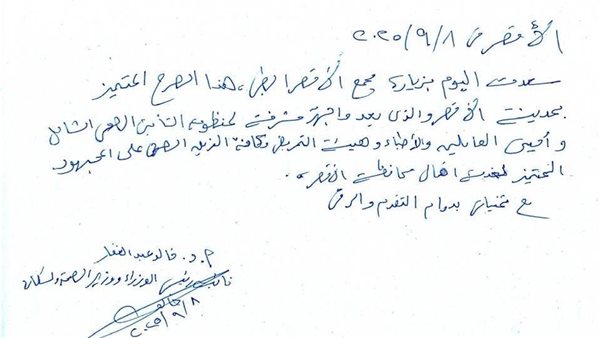 الأقصر في ٨/٩/٢٠٢٥
سعدت اليوم بزيارة مجمع الأقصر الطبى، هذا الصرح المتميز
بمدينة الأقصر والذى يعد واجهة مشرفة لمنظومة التأمين الصحى الشامل
وأحيى العاملين والأطباء وهيئة التمريض وكافة الفريق الصحى على المجهود
المتميز لخدمة أهالى محافظة الأقصر.
مع تمنياتى بدوام التقدم والرقى
أ.د. خالد عبدالغفار
نائب رئيس الوزراء ووزير الصحة والسكان
خالد
٨/٩/٢٠٢٥